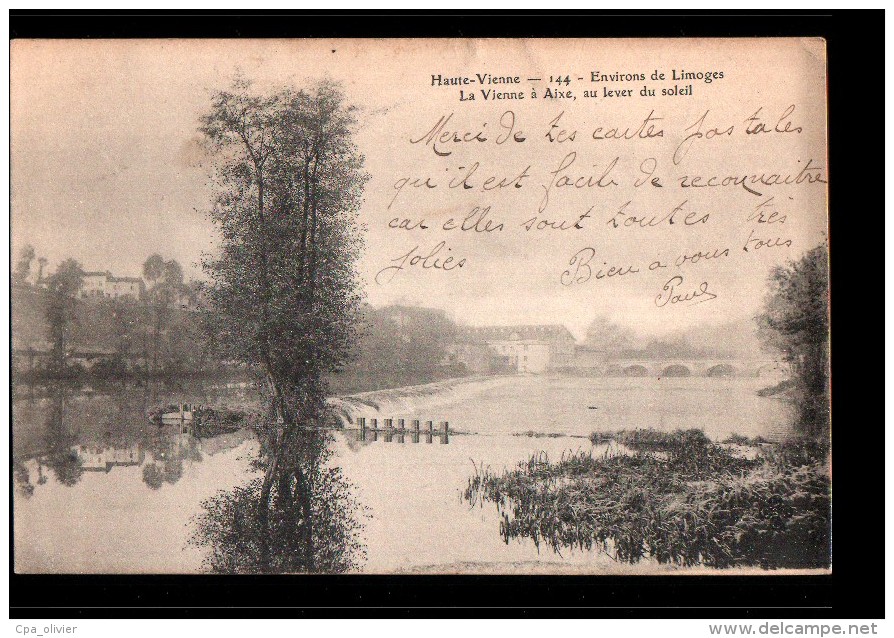 Haute-Vienne — 144 - Environs de Limoges
La Vienne à Aixe, au lever du soleil
Merci de tes cartes postales
qu'il est facile de reconnaitre
car elles sont toutes très
jolies Bien à vous tous
Paul
Cpa_olivier
www.delcampe.net